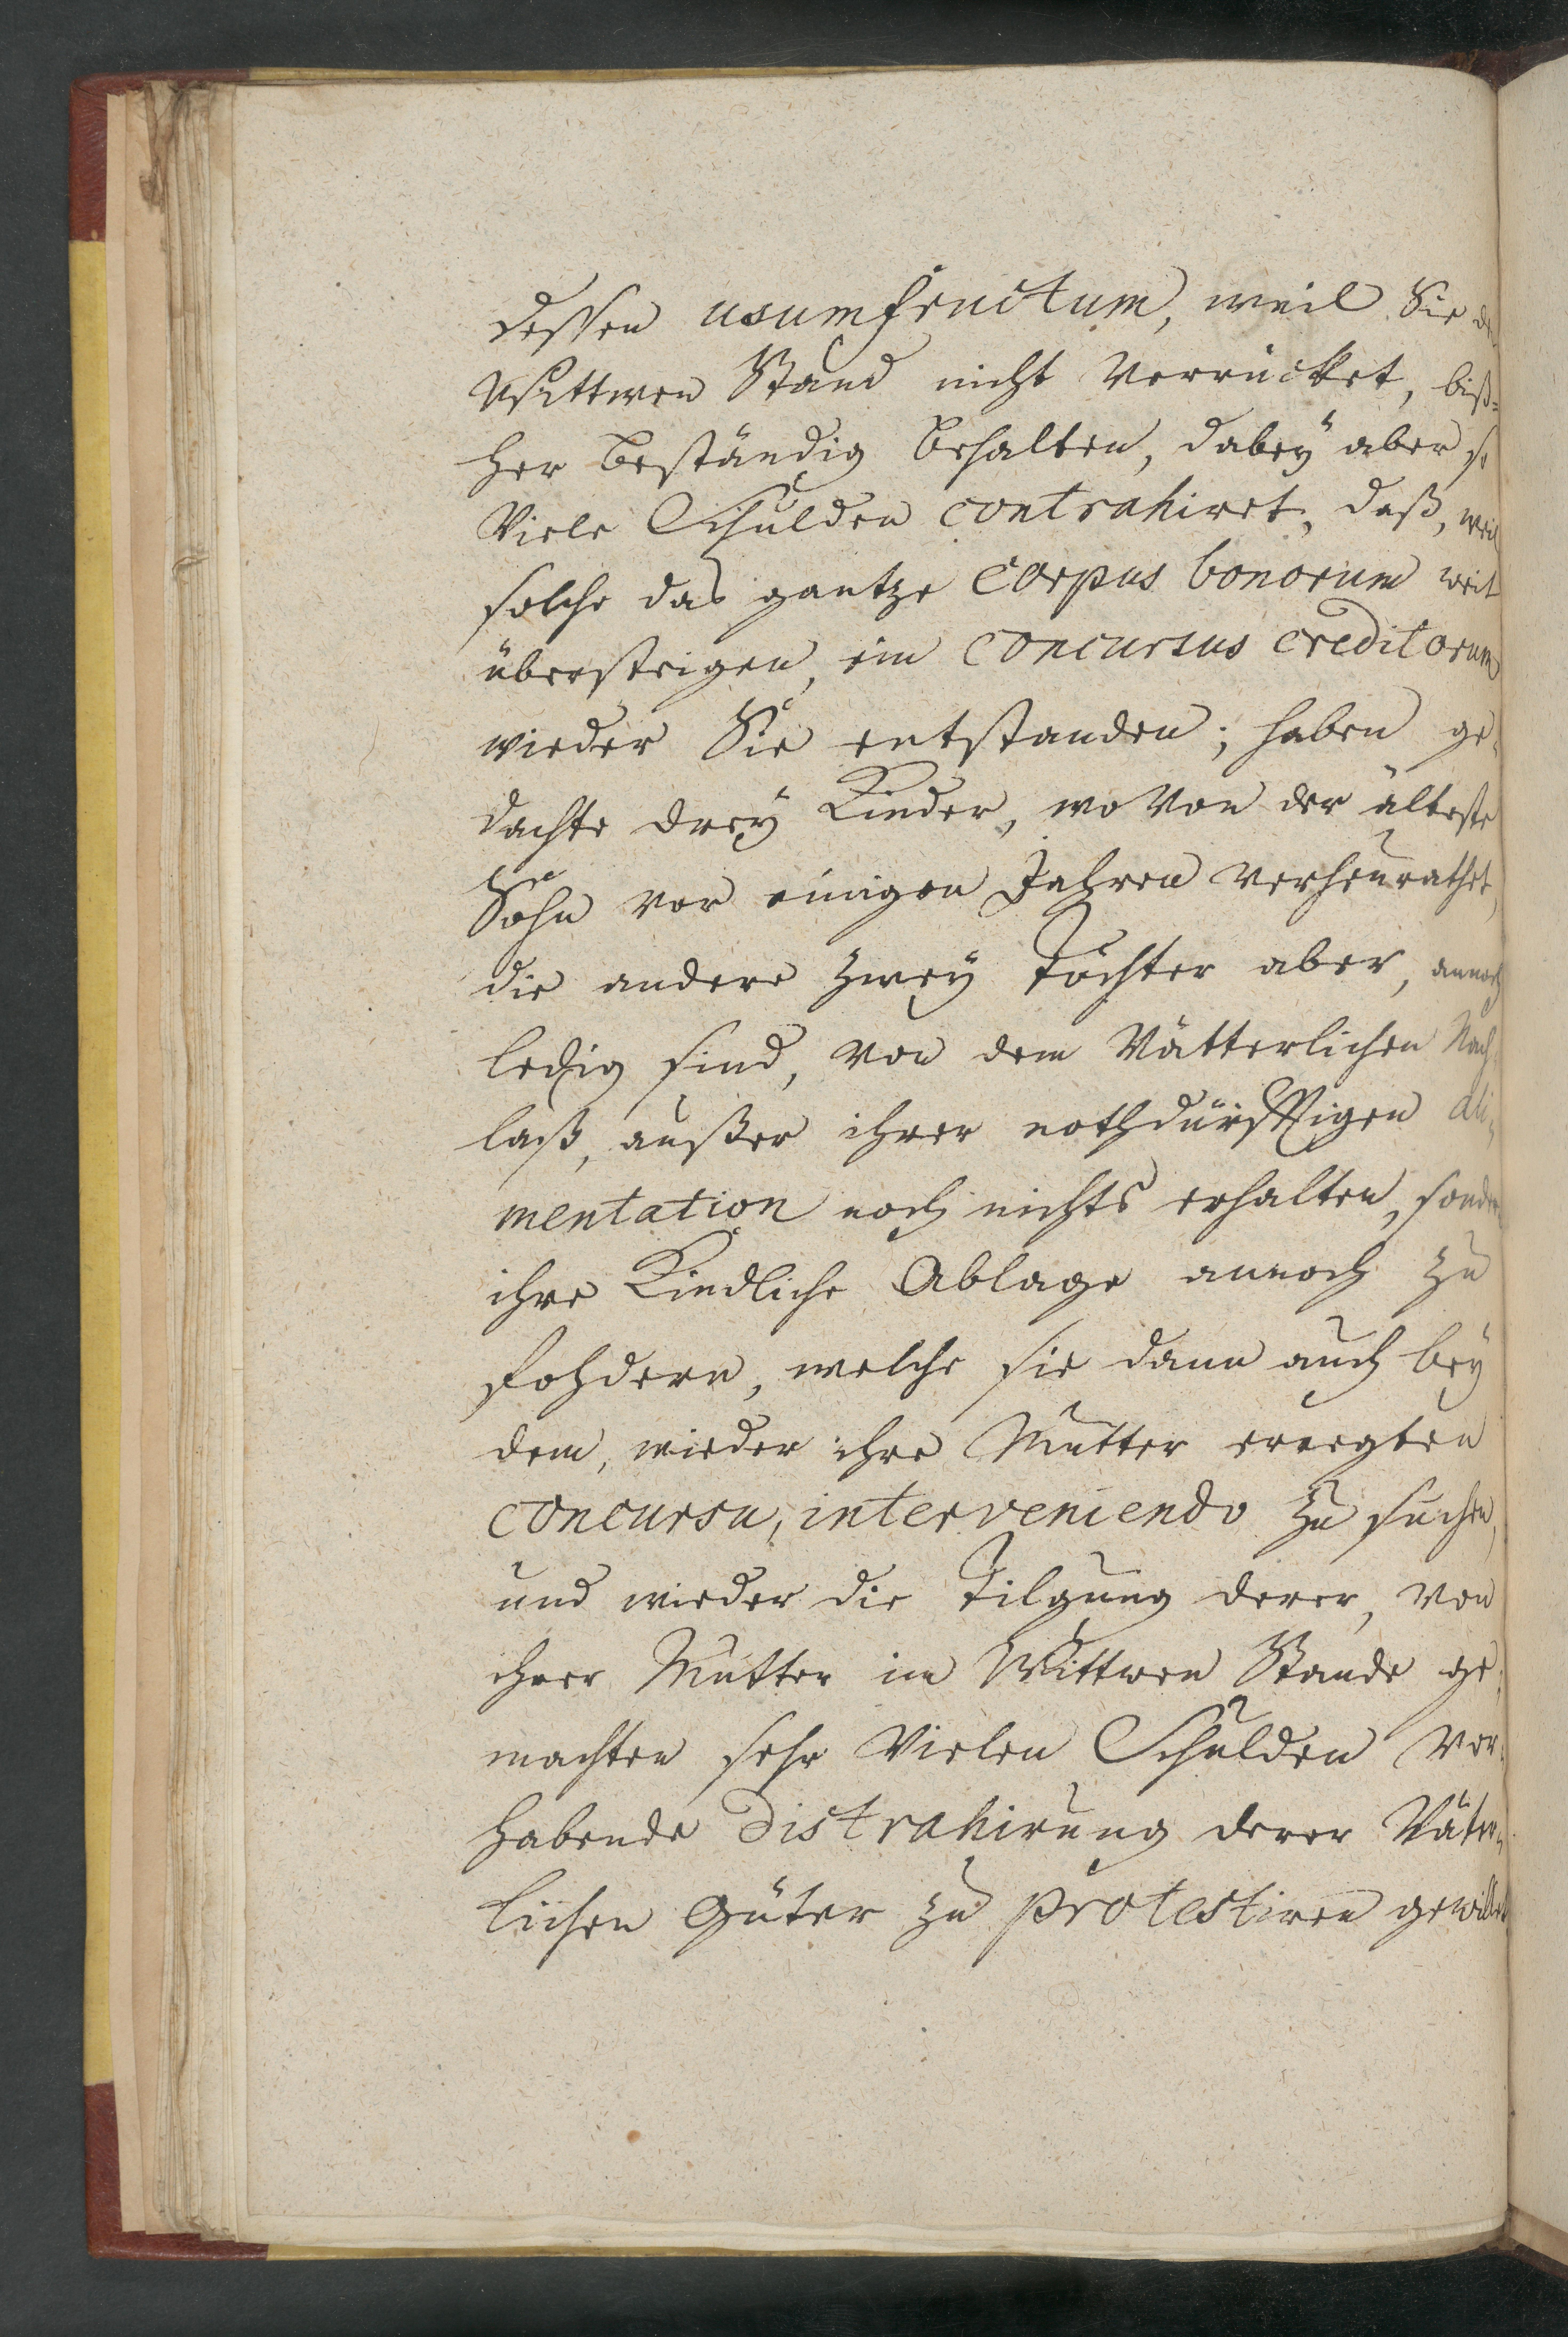 dessen usumfructum, weil Sie
Wittwen Stand nicht Verrücket, biß=
her beständig behalten, dabeÿ aber so
Viele Schulden contrahiret, daß, weil
solche das gantze Corpus bonorum weit
übersteigen, ein Concursus creditorum
wieder Sie entstanden; haben ge=
dachte dreÿ Kinder, wo Von der älteste
Sohn vor einigen Jahren verheurathet,
die andere Zweÿ Töchter aber, annoch
ledig sind, von dem Vätterlichen Nach=
laß, außer ihrer nothdürfftigen ali=
mentation noch nichts erhalten, sondern
ihre Kindliche Ablage annoch zu
fohdern, welche sie dann auch beÿ
dem, wieder ihre Mutter erregten
concursu, interveniendo zu suchen,
und wieder die Tilgung derer, von
ihrer Mutter im Wittwen Stande ge=
machten sehr Vielen Schulden vor=
habende Distrahirung derer Väter=
lichen Güter zu protestiren gewillet